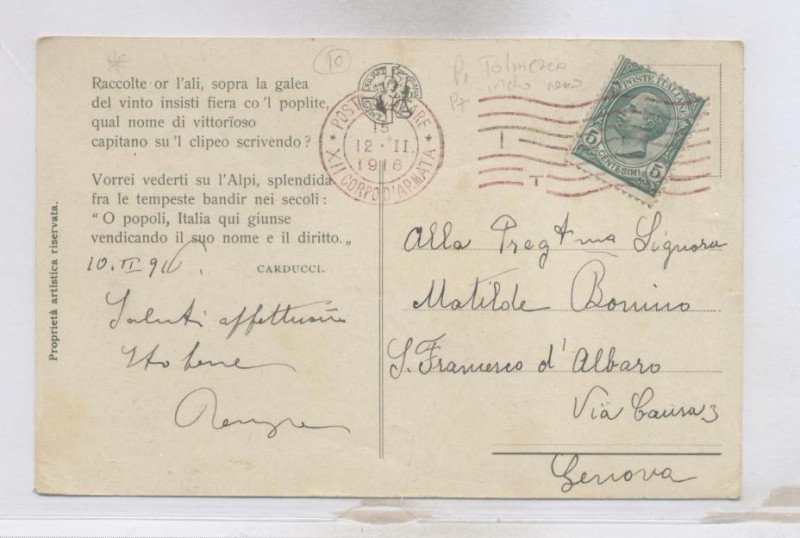 Raccolte or l'ali, sopra la galea
del vinto insisti fiera co 'l poplite,
qual nome di vittorïoso
capitano su 'l clipeo scrivendo?
Vorrei vederti su l'Alpi, splendida
fra le tempeste bandir nei secoli:
"O popoli, Italia qui giunse
vendicando il suo nome e il diritto.„
CARDUCCI.
10.II 916.
Saluti affettuosi
Sto bene
Proprietà artistica riservata.
10
POSTA MILITARE
15
12-II
1916
XII CORPO D'ARMATA
POSTE ITALIANE
5 CENTESIMI 5
Alla Preg.ma Signora
Matilde Bonino
S. Francesco d'Albaro
Via Causa 3
Genova